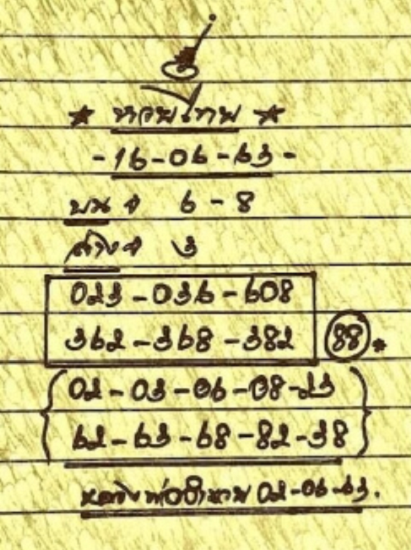 ★ หวยไทย ★
- 16-06-63 -
บน ฯ 6 - 8
ล่าง ฯ 3
023 - 036 - 608
362 - 368 - 382 88 *
02 - 03 - 06 - 08 - 23
62 - 63 - 68 - 82 - 38
02-06-63.